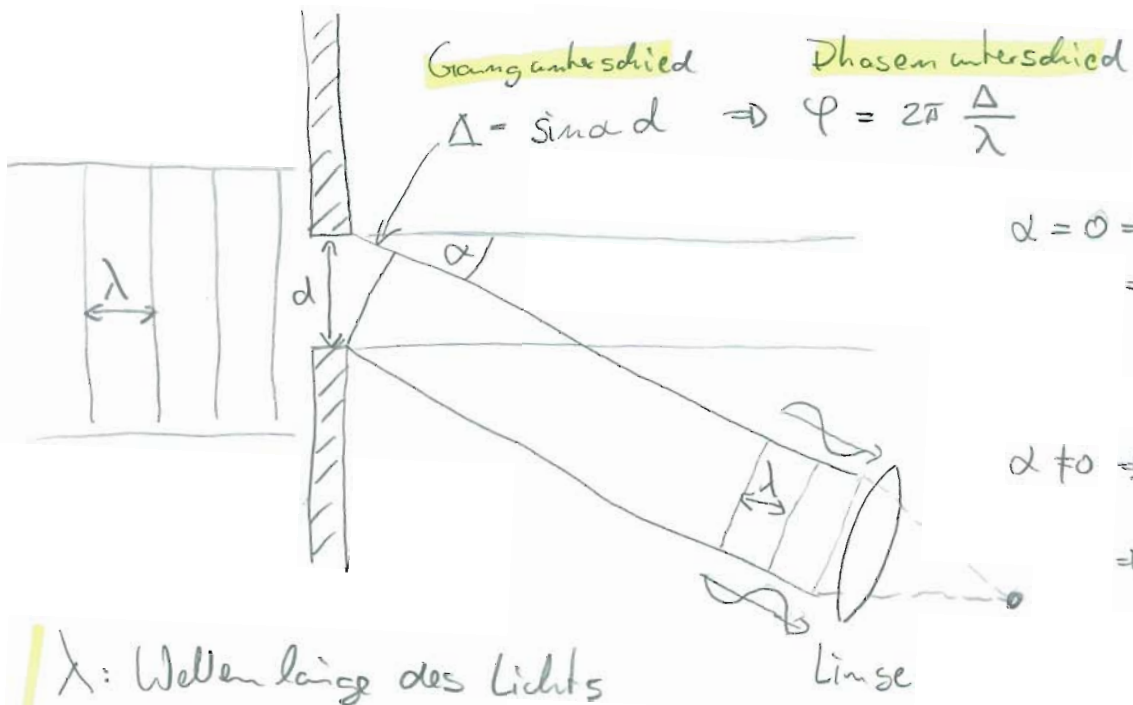 Gangunterschied Phasenunterschied
Δ = sinα d ⇒ φ = 2π Δ/λ
α = 0 =
=
α
λ
d
λ
α ≠ 0 ⇒
⇒
Linse
λ: Wellenlänge des Lichts